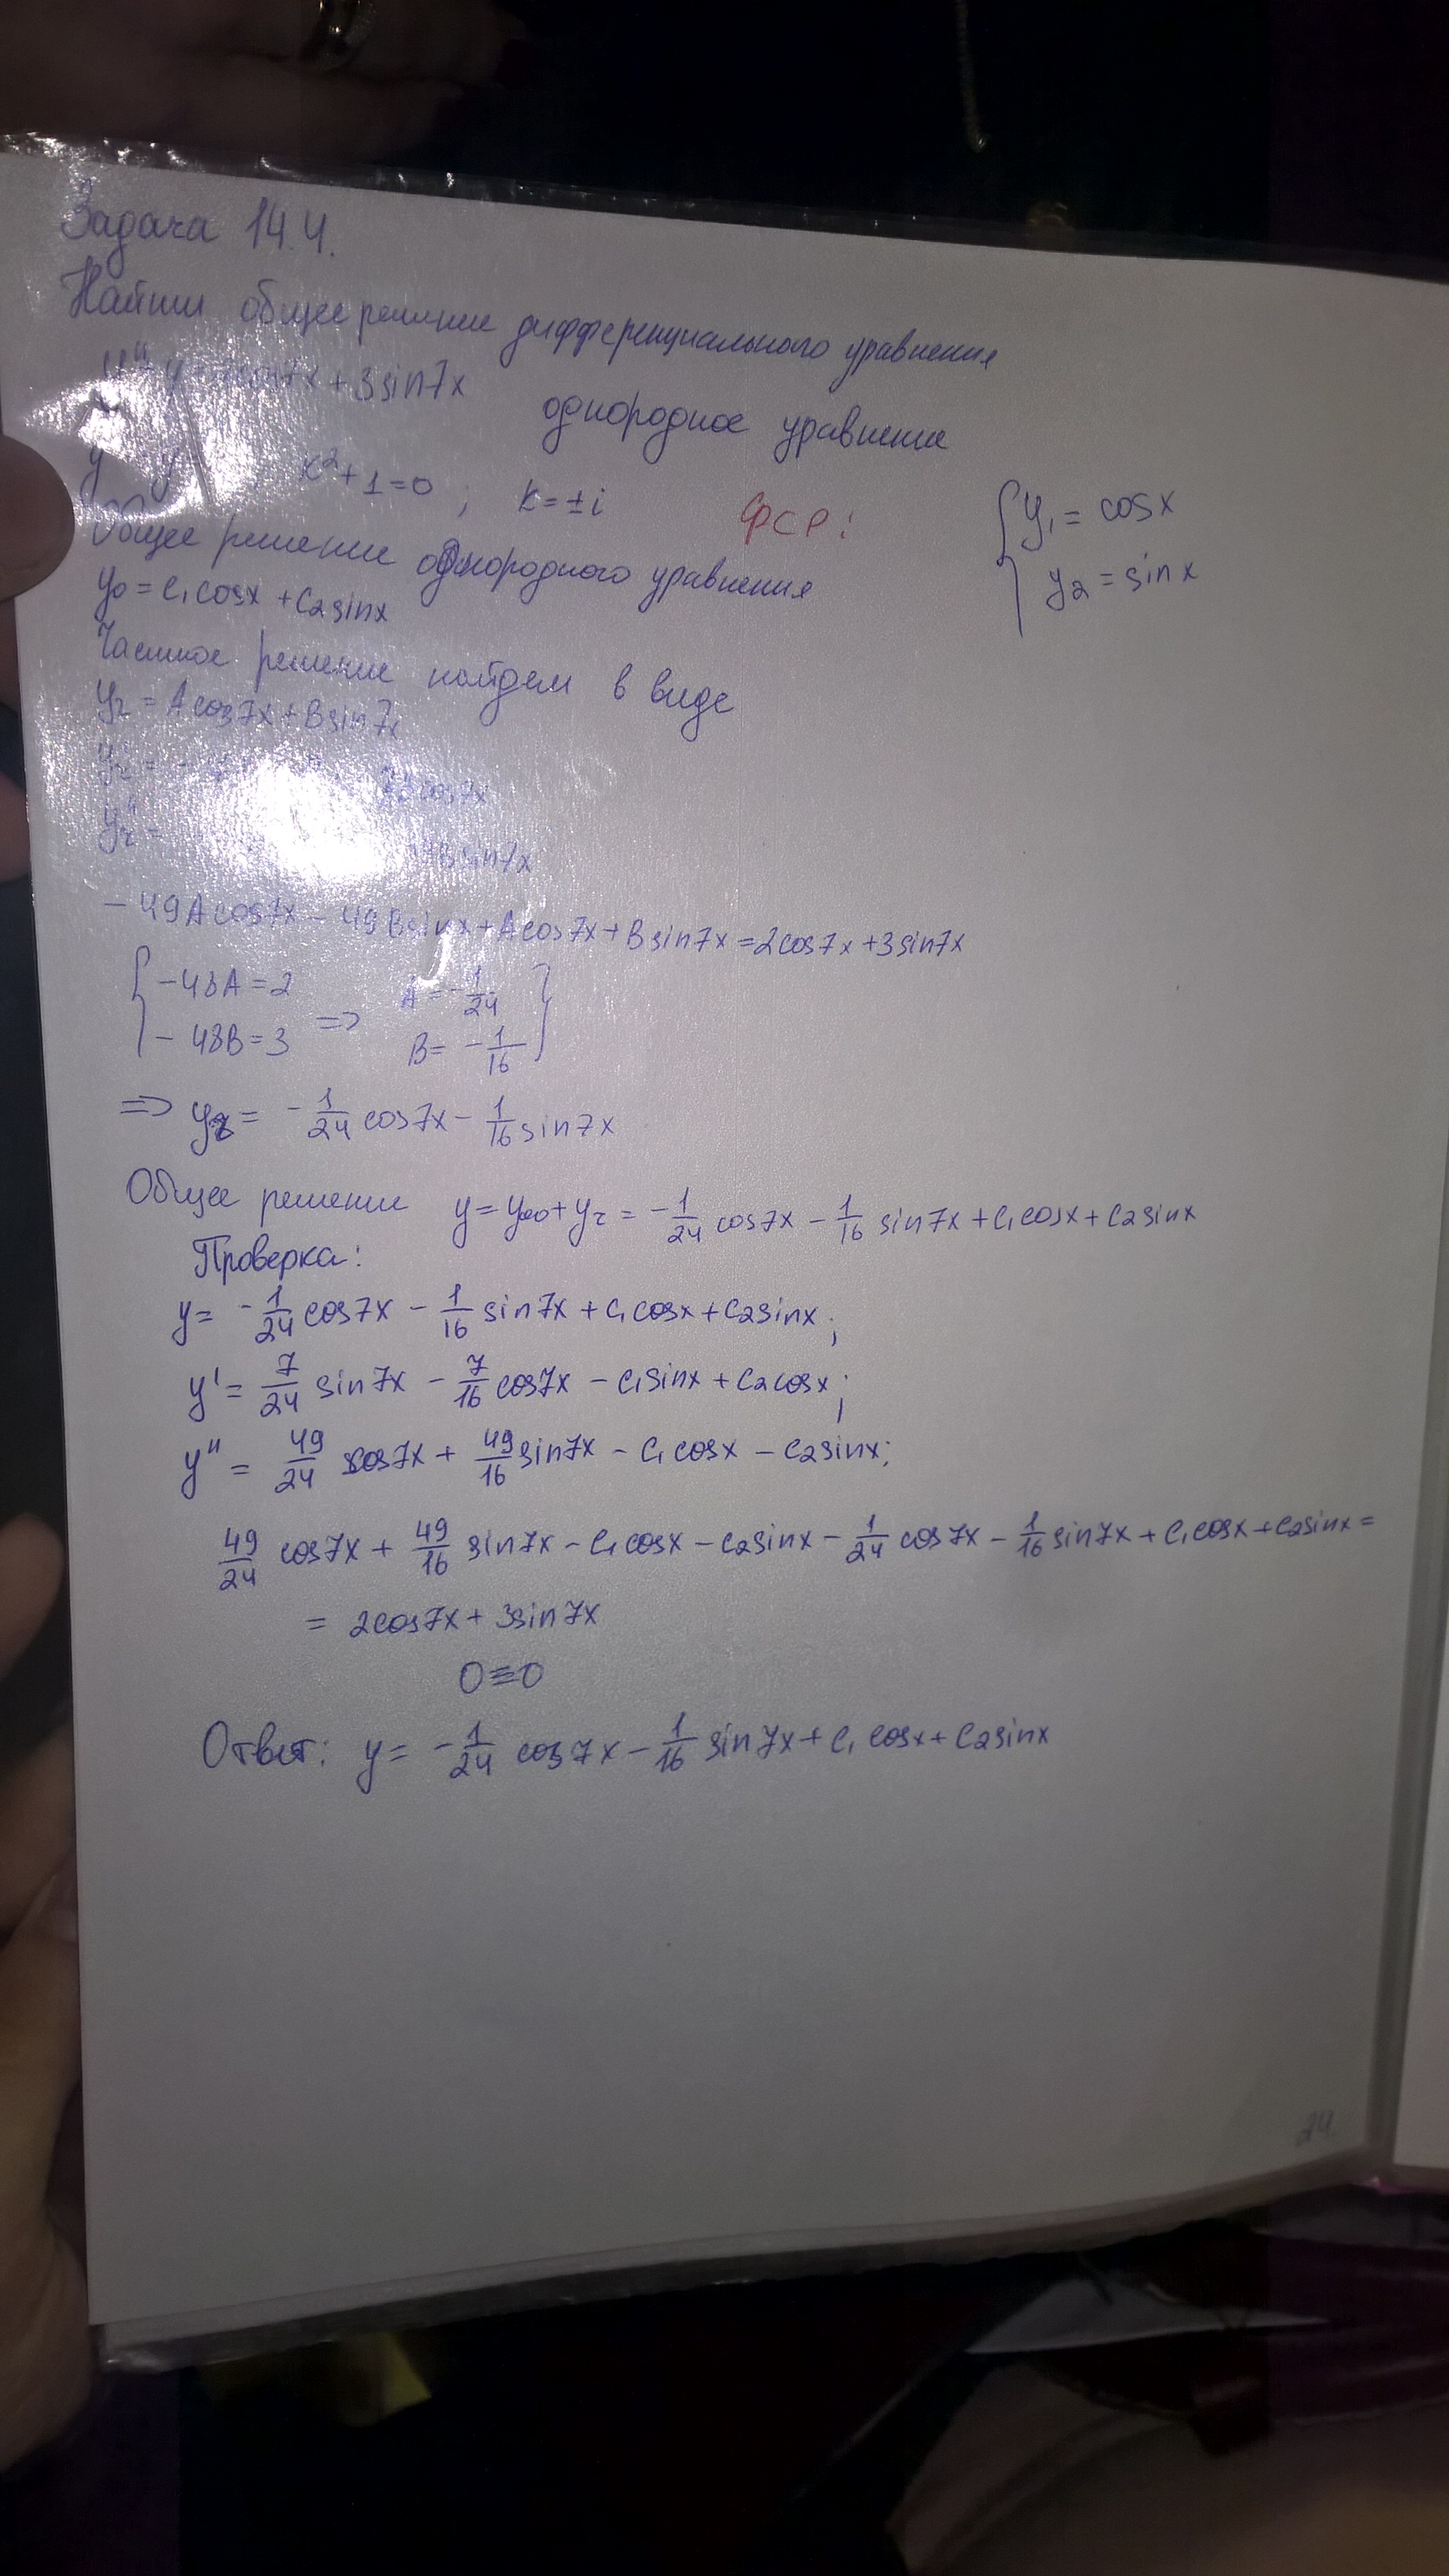 Задача 14.4.
Найти общее решение дифференциального уравнения
y''+y=2cos7x+3sin7x
однородное уравнение
y y , k²+1=0 ; k=±i ФСР: { y₁ = cosx
y₂ = sinx
Общее решение однородного уравнения
y₀ = C₁cosx + C₂sinx
Частное решение найдем в виде
yч = Acos7x+Bsin7x
yч' = 7Bcos7x
yч'' = 49Bsin7x
-49Acos7x - 49Bsinx+Acos7x+Bsin7x=2cos7x+3sin7x
{ -48A=2 => A=-1/24 }
-48B=3 B= -1/16
=> yч= -1/24 cos7x - 1/16 sin7x
Общее решение y=y₀₀+yч = -1/24 cos7x - 1/16 sin7x+C₁cosx+C₂sinx
Проверка:
y= -1/24 cos7x - 1/16 sin7x + C₁cosx+C₂sinx;
y' = 7/24 sin7x - 7/16 cos7x - C₁sinx + C₂cosx;
y'' = 49/24 cos7x + 49/16 sin7x - C₁cosx - C₂sinx;
49/24 cos7x + 49/16 sin7x - C₁cosx - C₂sinx - 1/24 cos7x - 1/16 sin7x + C₁cosx+C₂sinx =
= 2cos7x+3sin7x
0≡0
Ответ: y= -1/24 cos7x - 1/16 sin7x+C₁cosx+C₂sinx
24.